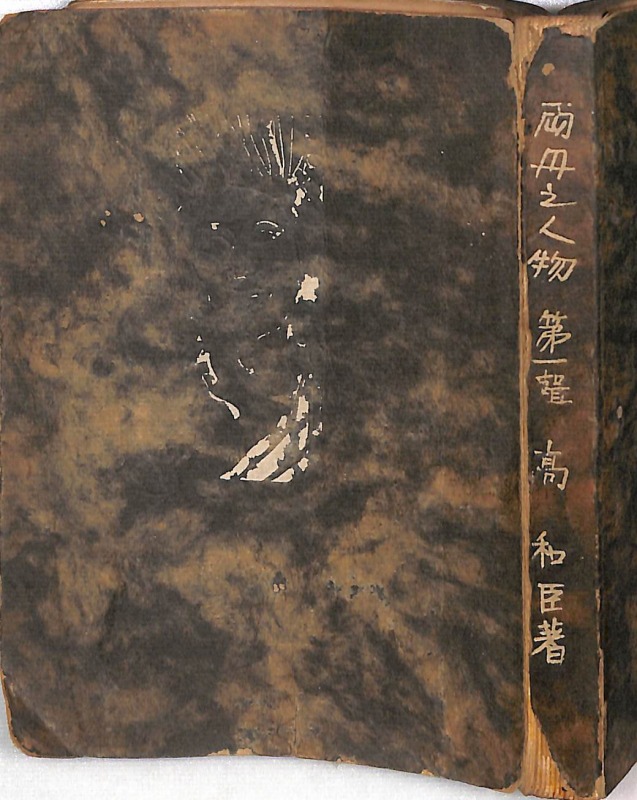 両丹之人物 第一輯 高 和臣著